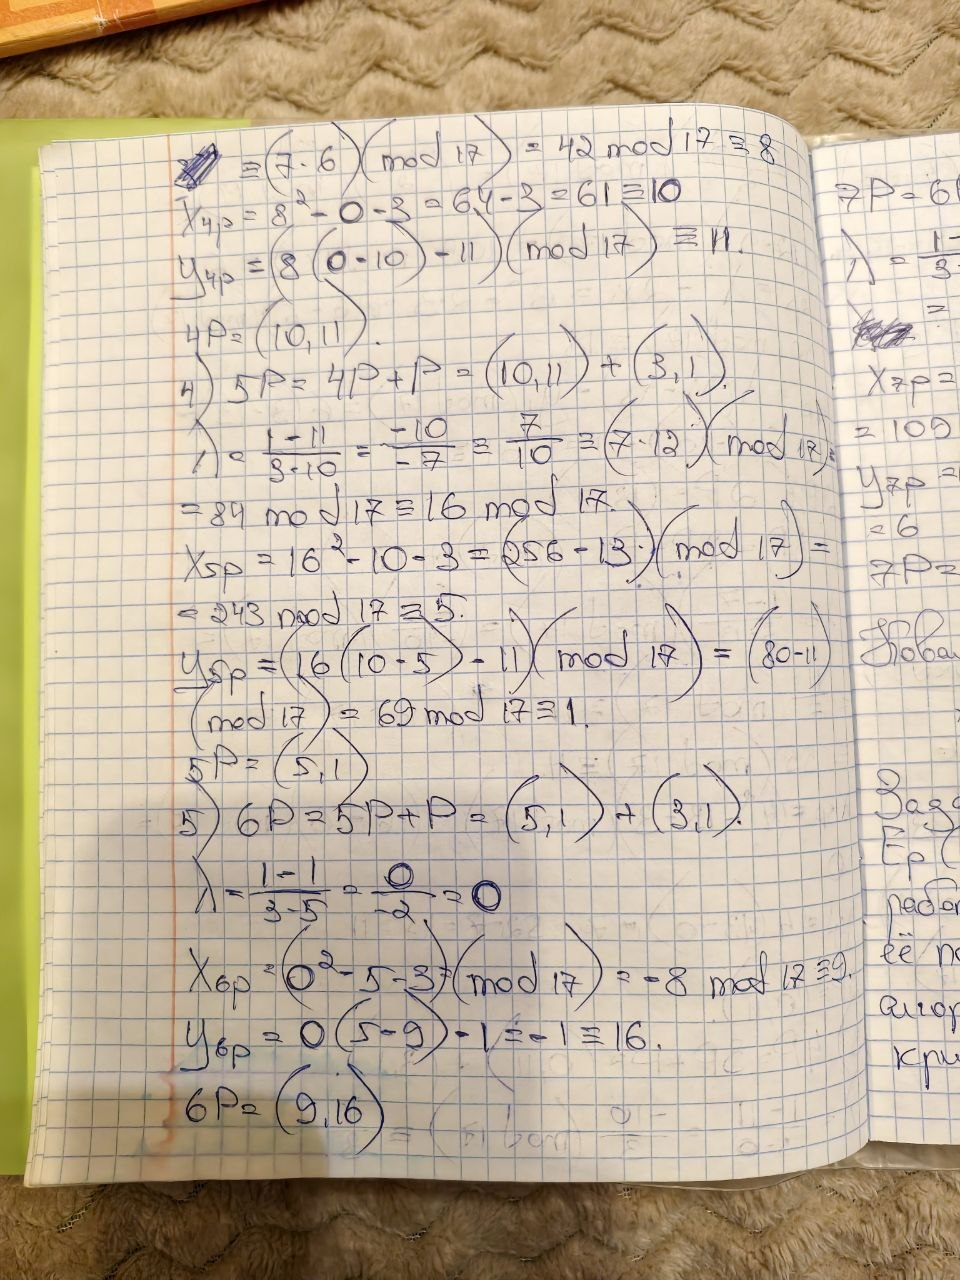 ≡ (7·6) (mod 17) = 42 mod 17 ≡ 8
X₄ₚ = 8² - 0 - 3 = 64 - 3 = 61 ≡ 10
y₄ₚ = (8(0-10) - 11) (mod 17) ≡ 11.
4P = (10, 11).
4) 5P = 4P + P = (10, 11) + (3, 1).
λ = (1-11)/(3-10) = (-10)/(-7) ≡ 7/10 ≡ (7·12) (mod 17) =
= 84 mod 17 ≡ 16 mod 17.
X₅ₚ = 16² - 10 - 3 = (256 - 13) (mod 17) =
= 243 mod 17 ≡ 5.
y₅ₚ = (16(10-5) - 11) (mod 17) = (80-11)
(mod 17) = 69 mod 17 ≡ 1.
5P = (5, 1)
5) 6P = 5P + P = (5, 1) + (3, 1).
λ = (1-1)/(3-5) = 0/(-2) = 0
X₆ₚ = (0² - 5 - 3) (mod 17) = -8 mod 17 ≡ 9.
y₆ₚ = 0(5-9) - 1 = -1 ≡ 16.
6P = (9, 16)
7P = 6P
λ =
=
X₇ₚ =
= 109
y₇ₚ =
= 6
7P =
Ep (
её